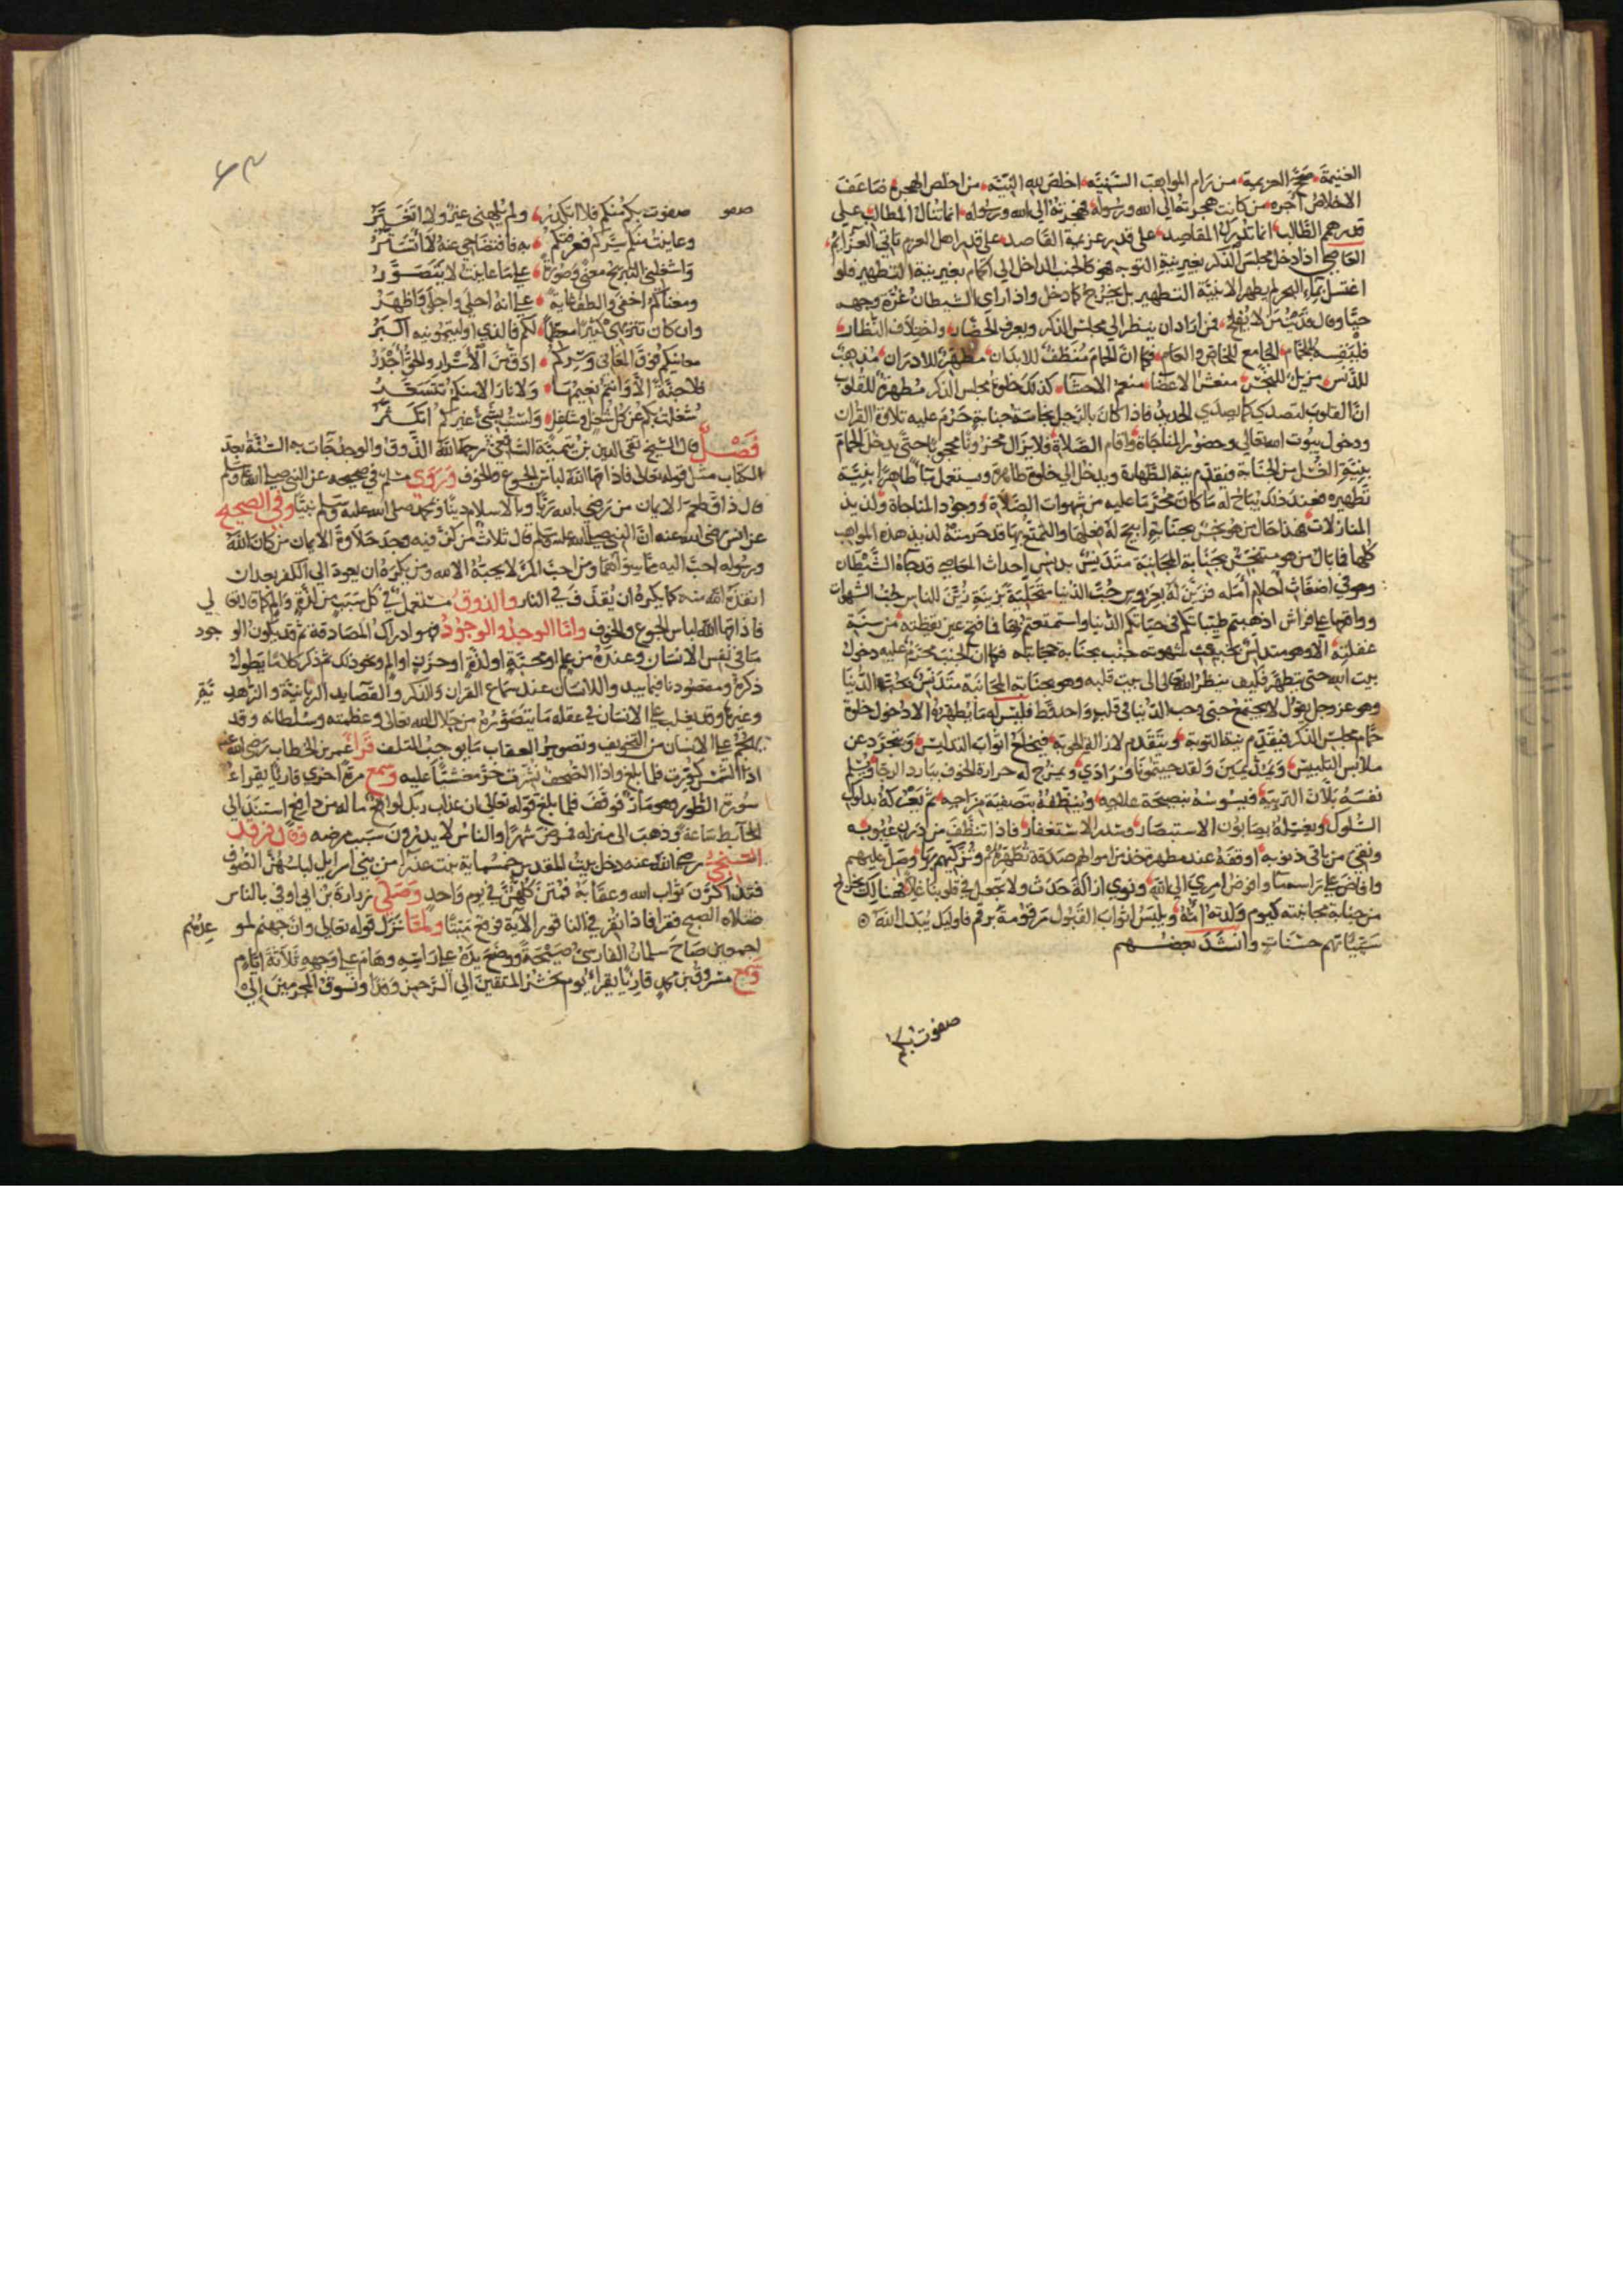 الغنيمة صحح العزيمة من رام المواهب السنية اخلص لله النية من اخلص الهجرة ضاعف
الاخلاص اجره من كانت هجرته الى الله ورسوله فهجرته الى الله ورسوله انما تنال المطالب على
قدر همم الطالب انما تدرك المقاصد على قدر عزيمة القاصد على قدر اهل العزم تاتي العزائم
العاصي اذا دخل مجلس الذكر بغير نية التوبة فهو كالجنب الداخل الى الحمام بغير نية التطهير فلو
اغتسل بماء البحر لم يطهر الا بنية التطهير بل يخرج كما دخل واذا راى الشيطان غرة وجهه
حيا وقال فديت من لا يفلح فمن اراد ان ينظر الى مجلس الذكر ويعرف الحضار واختلاف النظار
فليقسه بالحمام الجامع للخاص والعام فكما ان الحمام منظف للابدان مطهر للادران مذهب
للدنس مزيل للنجس منعش الاعضا منعم الاحشا كذلك خلوة مجلس الذكر مطهرة للقلوب
ان القلوب لتصدى كما يصدى الحديد فاذا كان بالرجل نجاسة جنابة حرم عليه تلاوة القران
ودخول بيوت الله تعالى وحضور المناجاة واقام الصلاة فلا يزال محزونا محجوبا حتى يدخل الحمام
بنية الغسل من الجنابة فيقدم نية الطهارة ويدخل الى خلوة طاهرة ويستعمل ماء طاهرا بنية
تطهيره فعند ذلك يباح له ما كان محرما عليه من شهوات الصلاة ووجود المناجاة ولذيذ
المنازلات فهذا حال من هو نجس بجنابة ابيح له فعلها والتمتع بها قد حرمته لذيذ هذه المواهب
كلها فما بال من هو متنجس بجنابة المجانبة متدنس بدنس احداث المعاصي قد جاه الشيطان
وهو في اضغاث احلام امله فزين له بعروس حب الدنيا متحلية بزينة زين للناس حب الشهوات
وواقعها على فراش اذهبتم طيباتكم في حياتكم الدنيا واستمتعتم بها فما فتح عين يقظته من سنة
غفلته الا وهو متدنس شهوته جنب بجنابة مجانبته فكما ان الجنب محرم عليه دخول
بيت الله حتى يتطهر فكيف ينظر الله تعالى الى بيت قلبه وهو بجنابة المجانبة متدنس بحب الدنيا
وهو عز وجل يقول لا يجتمع حبي وحب الدنيا في قلب واحد قط فليس له ما يطهره الا دخول خلوة
حمام مجلس الذكر فيقدم نية التوبة ويتقدم لازالة الحوبة فيخلع اثواب التدليس ويتجرد عن
ملابس التلبيس ولقد جيتمونا فرادى ويمزج له حرارة الخوف ببارد الرجا ويسلم
نفسه بلان التربية فيسوسه بنصيحة علاجه وينظفه بتصفية مزاجه ثم يعركه
السلوك ويغسله بصابون الاستبصار وسدر الاستغفار فاذا تنظف من درن عيوبه
ونقي من باقي ذنوبه اوقفه عند مطهرة خذ من اموالهم صدقة تطهرهم وتزكيهم بها وصل عليهم
وافاض على راسه ماء وافوض امري الى الله ونوى ازالة حدث ولا تجعل في قلوبنا غلا فهنالك يخرج
من جنابة مجانبته كيوم ولدته امه ويلبس اثواب القبول مرقومة برقم فاوليك يبدل الله
سيئاتهم حسنات وانشد بعضهم
صفوت بكم
صفو
صفوت بكم منكم فلا اتكدر ولم يلهني غير ولا اتغير
وعاينت منكم سركم فعرفتكم به فافتضاحي عنه لا اتستر
واشغلني التبريح معنى وصورة على ما عاينت لا يتصور
ومعناكم اخفى والطف غاية على انه اجلى واجلى واظهر
وان كان تنزيهي كثيرا معجلا لكم فالذي اوليتموني اكبر
معانيكم فوق المعاني وسركم ادق من الاسرار والحق اجدر
فلا جنة الا وانتم نعيمها ولا نار الا منكم تتسعر
شغلت بكم عن كل شغل وشاغل ولست بشيء غيركم اتكثر
فصل قال الشيخ تقي الدين بن تيمية رحمه الله الذوق والوجد جآت به السنة بعد
الكتاب مثل قوله تعالى فاذاقها الله لباس الجوع والخوف وروى مسلم في صحيحه عن النبي صلى الله عليه وسلم
قال ذاق طعم الايمان من رضي بالله ربا وبالاسلام دينا وبمحمد صلى الله عليه وسلم نبيا وفي الصحيح
عن انس رضي الله عنه ان النبي صلى الله عليه وسلم قال ثلاث من كن فيه وجد حلاوة الايمان من كان الله
ورسوله احب اليه مما سواهما ومن احب المرء لا يحبه الا لله ومن يكره ان يعود الى الكفر بعد ان
انقذه الله منه كما يكره ان يقذف في النار والذوق مستعمل في كل سبب من
فاذاقها الله لباس الجوع والخوف واما الوجد والوجود فهو ادراك المصادفة ثم قد يكون الوجود
ما في نفس الانسان وعنده من علم او محبة او لذة او حزن او الم ونحو ذلك ثم ذكر كلاما يطول
ذكره ومقصودنا فيما يبديه اللسان عند سماع القران والذكر والقصايد الربانية والزهد
وغيره وقد يغلب على الانسان في عقله ما يتصوره من جلال الله تعالى وعظمته وسلطانه وقد
يهجم على الانسان من التخويف وتصوير العقاب ما يوجب التلف قرا عمر بن الخطاب رضي الله عنه
اذا الشمس كورت فلما بلغ واذا الصحف نشرت خر مغشيا عليه وسمع مرة اخرى قاريا يقراء
سورة الطور وهو مار فوقف فلما بلغ قوله تعالى ان عذاب ربك لواقع ما له من دافع استند الى
الحايط ساعة وذهب الى منزله فمرض شهرا والناس لا يدرون سبب مرضه وقال فرقد
السبخي رضي الله عنه دخل بيت المقدس خمسماية بنت عذرا من بني اسرايل لباسهن الصوف
فتذاكرن ثواب الله وعقابه فمتن كلهن في يوم واحد وصلى زرارة بن ابي اوفى بالناس
صلاة الصبح فقرا فاذا نقر في الناقور الاية فوقع ميتا ولما نزل قوله تعالى وان جهنم لموعدهم
اجمعين صاح سلمان الفارسي صيحة ووضع يده على راسه وهام على وجهه ثلاثة ايام
وسمع مسروق بن قاريا يقرا يوم نحشر المتقين الى الرحمن وفدا ونسوق المجرمين الى